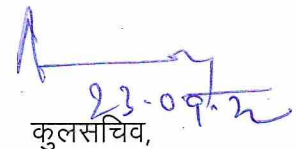 23-09-22
कुलसचिव,